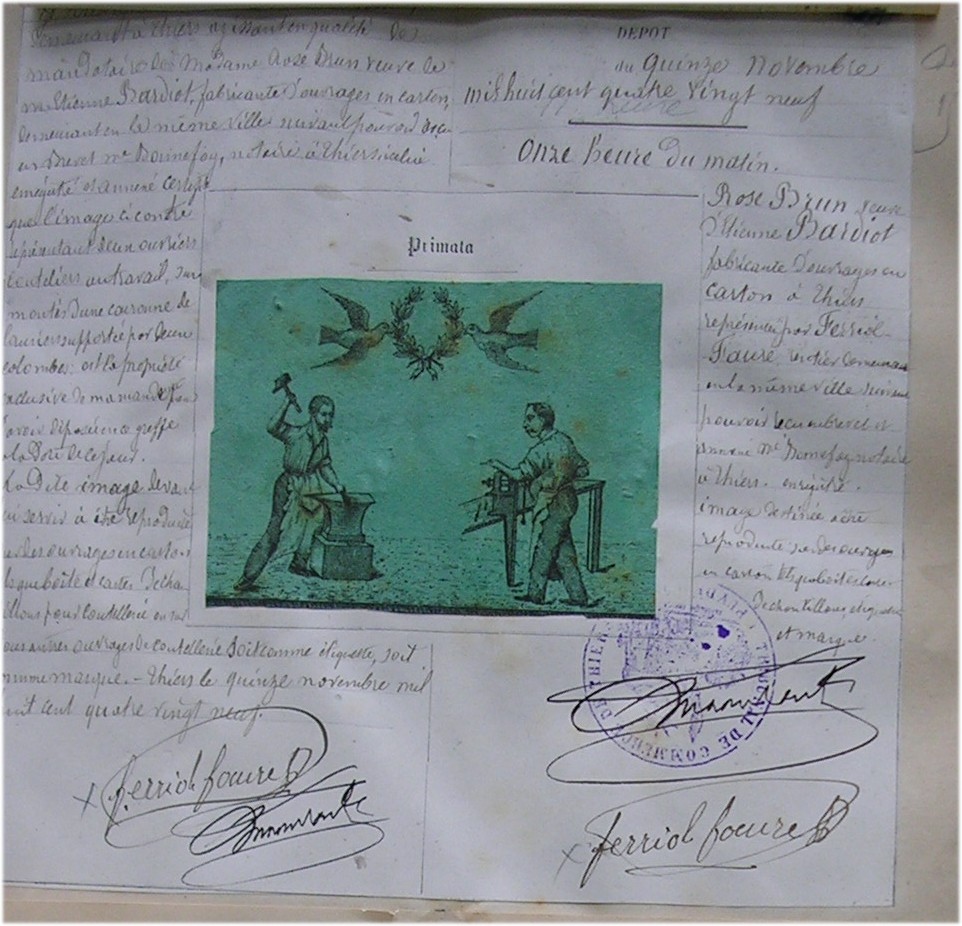 demeurant à Thiers agissant en qualité de
mandataire de Madame Rose Brun veuve de
Mr Etienne Bardiot, fabricante d'ouvrages en carton,
demeurant en la même ville suivant pouvoir reçu
en Brevet Me Bonnefoy, notaire à Thiers
enrégistré et annexé certifie
que l'image ci contre
représentant deux ouvriers
couteliers au travail, sur
montés d'une couronne de
lauriers supportée par deux
colombes: est la propriété
exclusive de ma mandante pour
l'avoir déposée en ce greffe
à la Date de ce jour.
La Dite image devant
lui servir à être reproduite
sur des ouvrages en carton
tels que boîte et cartes D'échan
tillons pour Coutellerie ou sur
tous autres ouvrages de coutellerie soit comme étiquette, soit
comme marque. - Thiers le quinze novembre mil
huit cent quatre vingt neuf.
Ferriol faure
DEPOT
du quinze novembre
mil huit cent quatre vingt neuf
Onze heure du matin.
Primata
Rose Brun veuve
d'Etienne Bardiot
fabricante d'ouvrages en
carton à Thiers
représentée par Ferriol-
Faure demeurant
en la même ville suivant
pouvoir reçu en brevet et
annexé Me Bonnefoy notaire
à Thiers. enrégistré.
image destinée à être
reproduite sur des ouvrages
en carton tels que boîtes cartes
D'échantillons, etiquette
et marque.
TRIBUNAL DE COMMERCE DE THIERS
Ferriol faure